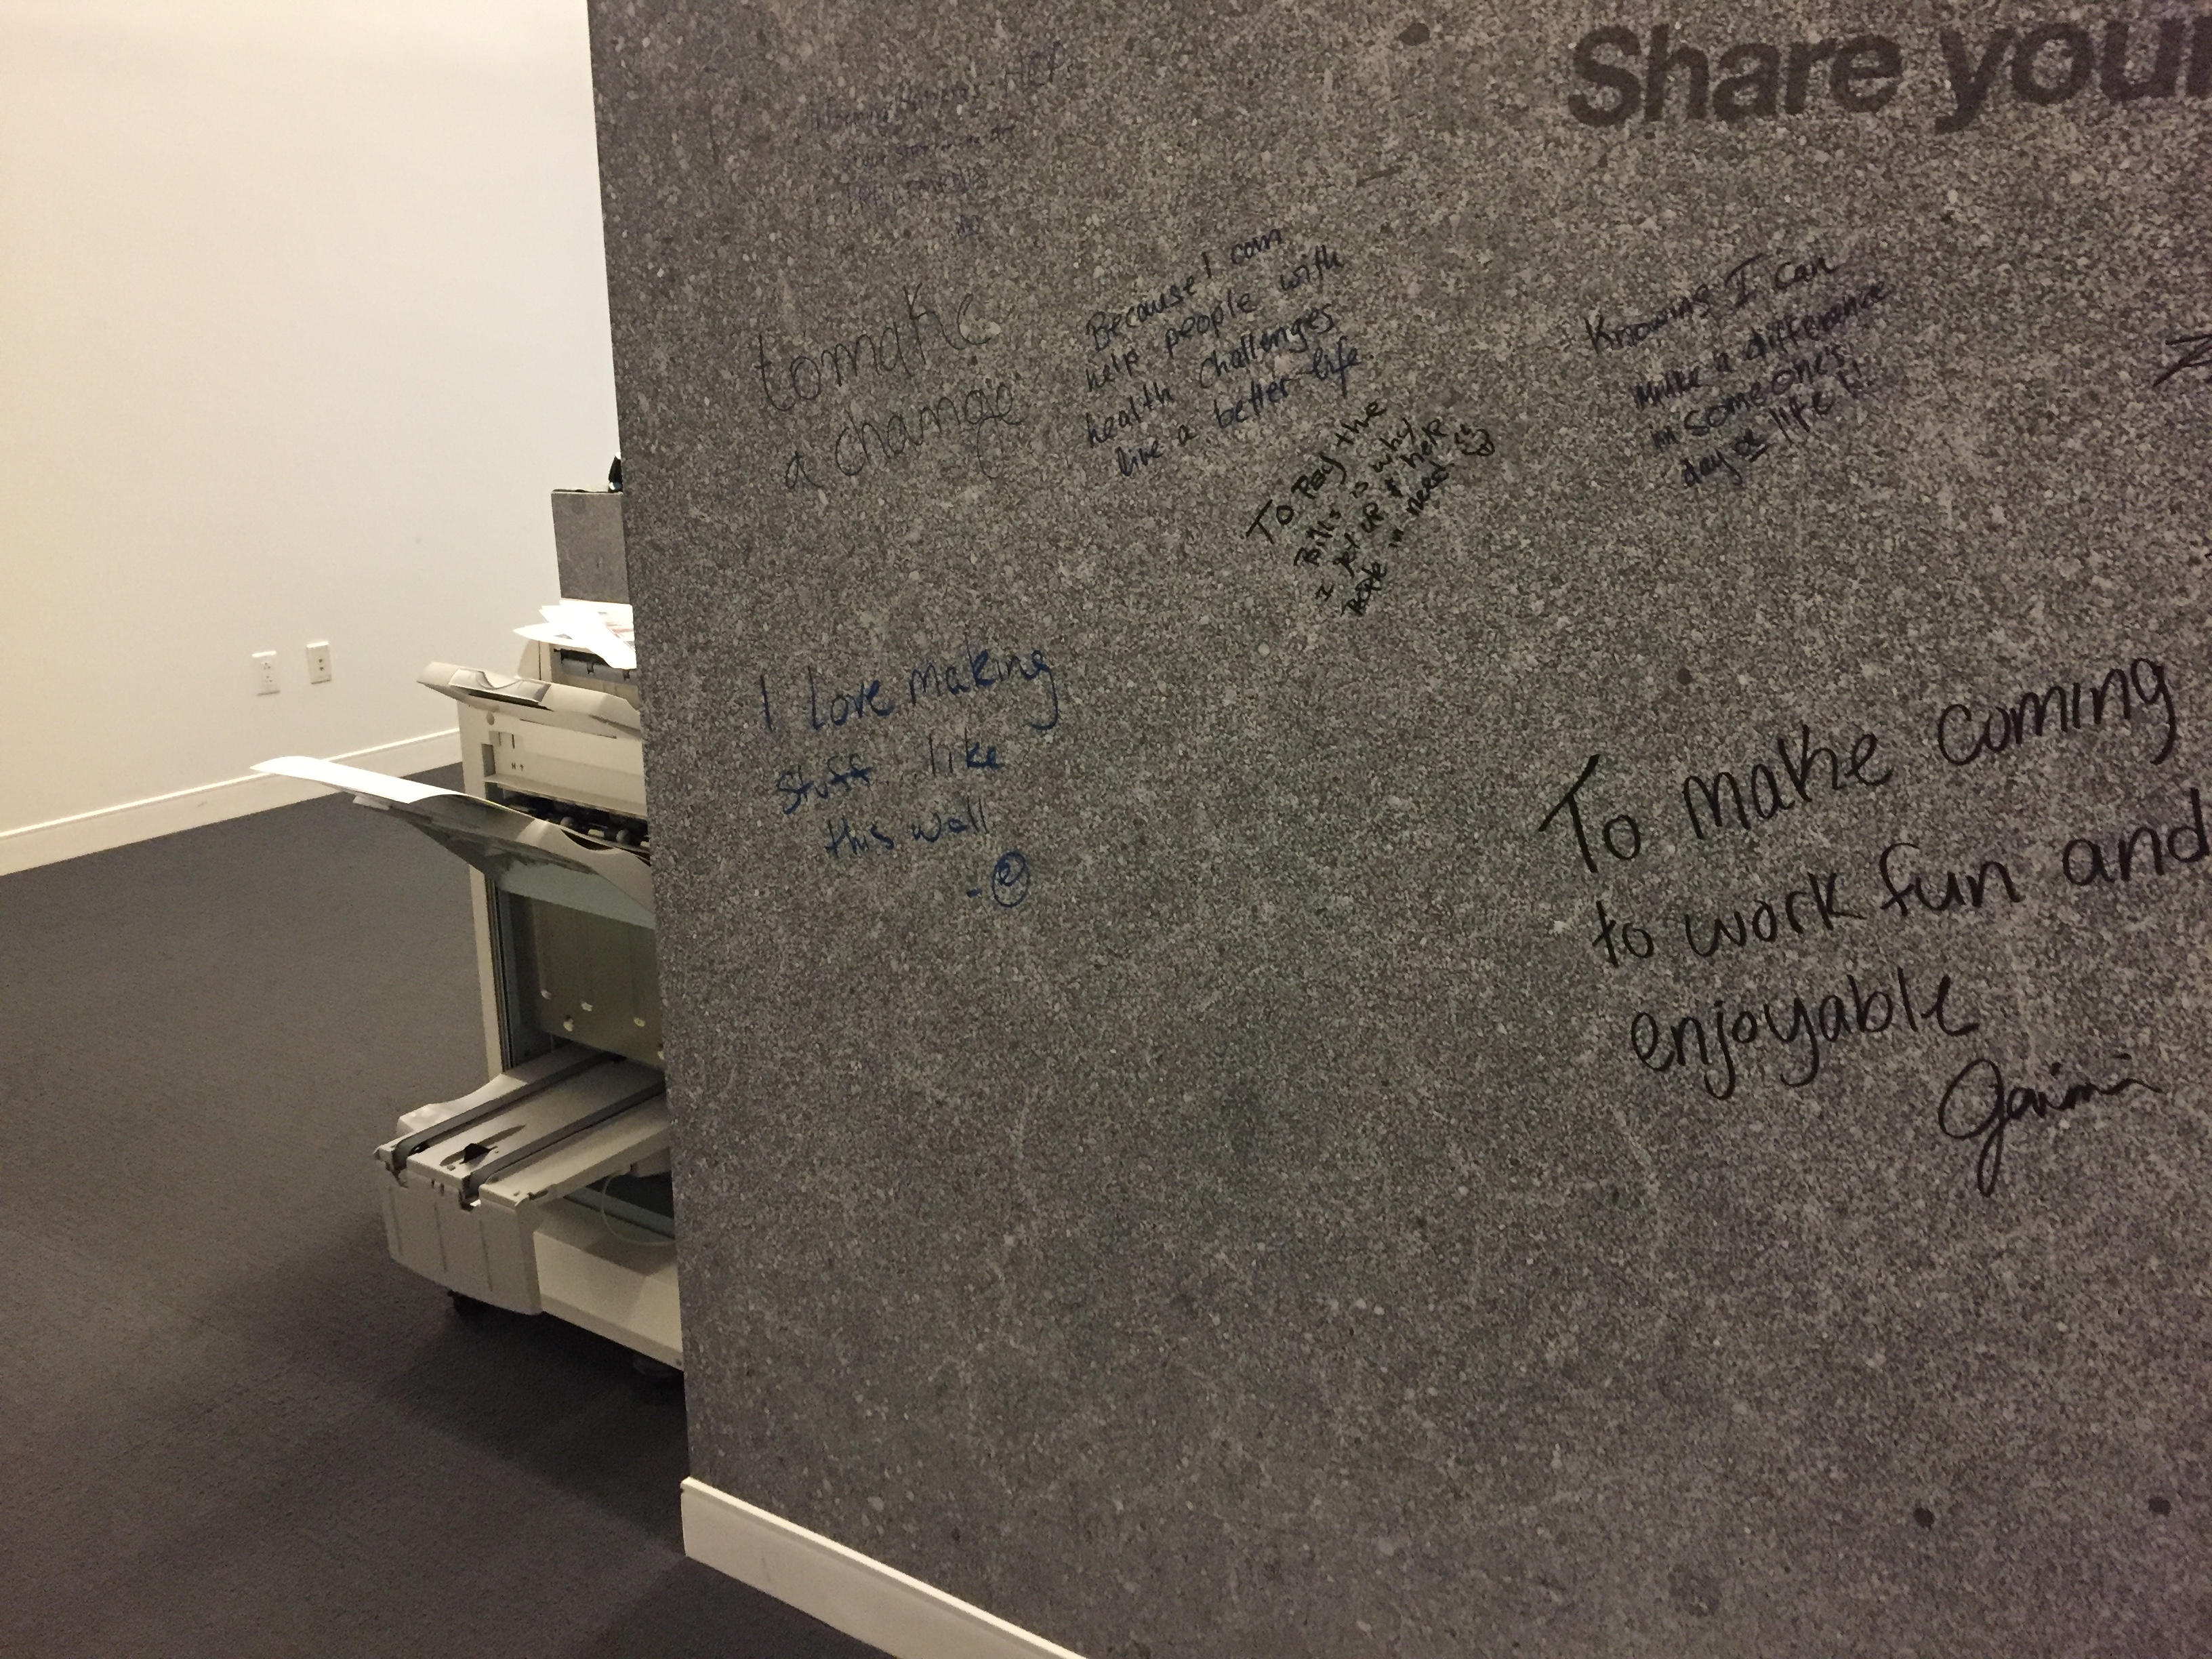 Share your
to make
a change
Because I can
help people with
health challenges
live a better life
To Pay the
Bills is why
I get up & help
People in need
Knowing I can
Make a difference
in someone's
day or life!!
I Love making
Stuff like
this wall
- e
To make coming
to work fun and
enjoyable